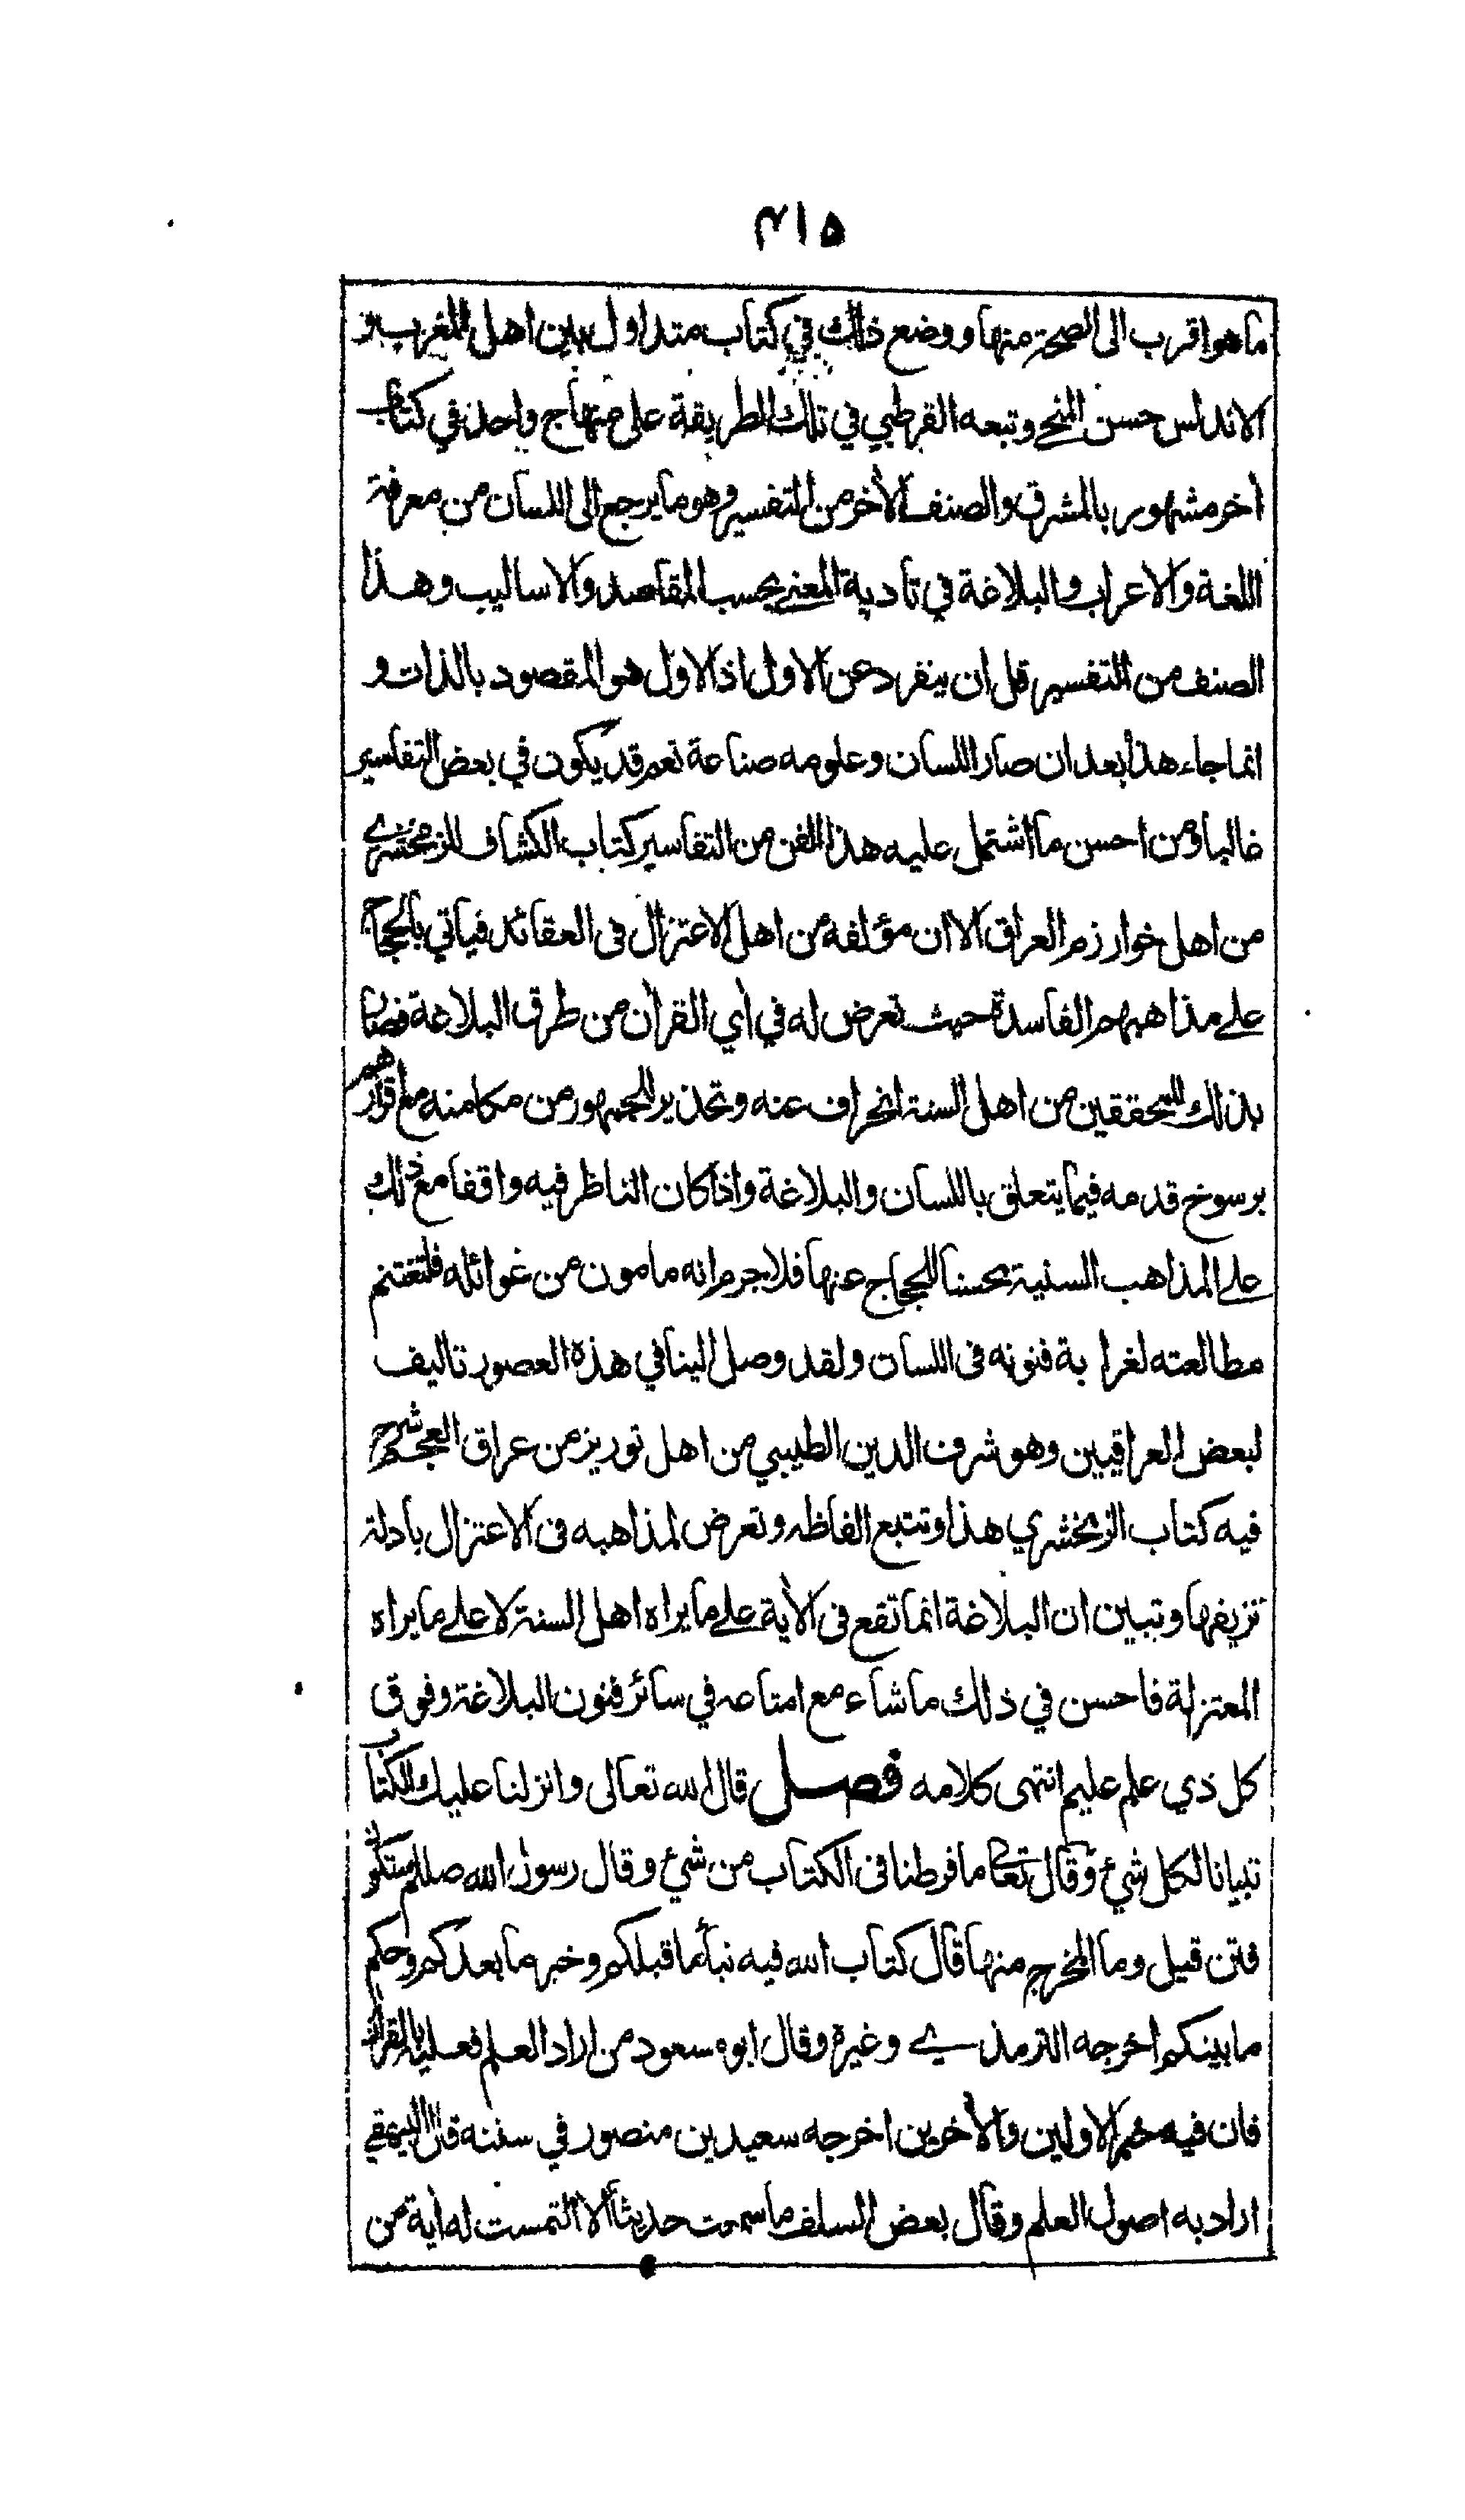 ٣١٥
ما هو اقرب الى الصحة منها ووضع ذلك في كتاب متداول بين اهل المغرب و
الاندلس حسن المنحى وتبعه القرطبي في تلك الطريقة على منهاج واحد في كتاب
أخر مشهور بالمشرق والصنف الأخر من التفسير وهو ما يرجع الى اللسان من معرفة
اللغة والاعراب والبلاغة في تادية المعنے بحسب المقاصد والاساليب وهذا
الصنف من التفسير قل ان ينفرد عن الاول اذ الاول هو المقصود بالذات و
انما جاء هذا بعد ان صار اللسان وعلومه صناعة نعم قد يكون في بعض التفاسير
غالبا ومن احسن ما اشتمل عليه هذا الفن من التفاسير كتاب الكشاف للزمخشرے
من اهل خوارزم العراق الا ان مؤلفه من اهل الاعتزال في العقائد فياتي بالحجاج
علے مذاهبهم الفاسدة حيث تعرض له في أي القرأن من طرق البلاغة فصار
بذلك للمحققين من اهل السنة انحراف عنه وتحذير للجمهور من مكامنه مع اقرارهم
برسوخ قدمه فيما يتعلق باللسان والبلاغة واذا كان الناظر فيه واقفا مع ذلك
علے المذاهب السنية محسنا للحجاج عنها فلا جرم انه مامون من غوائله فلتغتنم
مطالعته لغرابة فنونه في اللسان ولقد وصل الينا في هذه العصور تاليف
لبعض العراقيين وهو شرف الدين الطيبي من اهل توريز من عراق العجم شرح
فيه كتاب الزمخشري هذا وتتبع الفاظه وتعرض لمذاهبه في الاعتزال بادلة
تزيفها وتبين ان البلاغة انما تقع في الأية علے ما يراه اهل السنة لا علے ما يراه
المعتزلة فاحسن في ذلك ما شاء مع امتاعه في سائر فنون البلاغة وفوق
كل ذي علم عليم انتهى كلامه فصل قال الله تعالى وانزلنا عليك الكتاب
تبيانا لكل شيء وقال تعالى ما فرطنا في الكتاب من شيء وقال رسول الله صللم ستكون
فتن قيل وما المخرج منها قال كتاب الله فيه نبأ ما قبلكم وخبر ما بعدكم وحكم
ما بينكم اخرجه الترمذے وغيره وقال ابو سعود من اراد العلم فعليه بالقرأن
فان فيه خبر الاولين والأخرين اخرجه سعيد بن منصور في سننه قال البيهقے
اراد به اصول العلم وقال بعض السلف ما سمعت حديثا ألا التمست له أية من